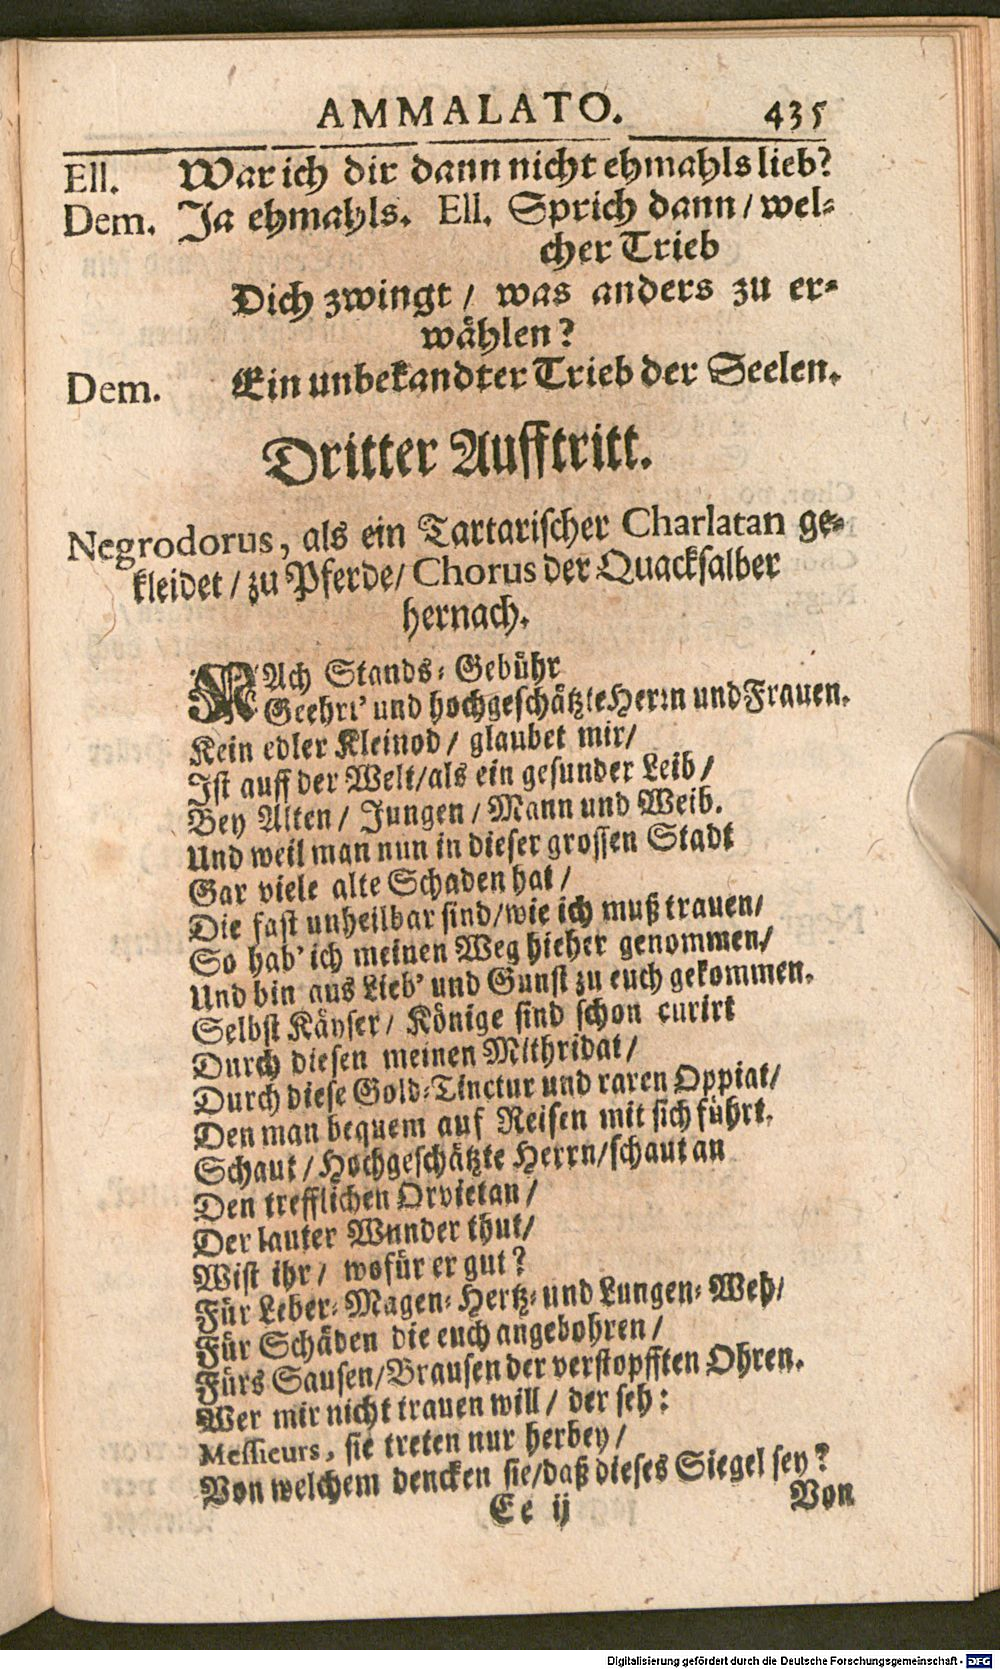 AMMALATO. 435
Ell. War ich dir dann nicht ehmahls lieb?
Dem. Ja ehmahls. Ell. Sprich dann / wel-
cher Trieb
Dich zwingt / was anders zu er-
wählen?
Dem. Ein unbekandter Trieb der Seelen.
Dritter Aufftritt.
Negrodorus, als ein Tartarischer Charlatan ge-
kleidet / zu Pferde / Chorus der Quacksalber
hernach.
NAch Stands-Gebühr
Geehrt' und hochgeschätzte Herrn und Frauen.
Kein edler Kleinod / glaubet mir /
Ist auff der Welt / als ein gesunder Leib /
Bey Alten / Jungen / Mann und Weib.
Und weil man nun in dieser grossen Stadt
Gar viele alte Schaden hat /
Die fast unheilbar sind / wie ich muß trauen /
So hab' ich meinen Weg hieher genommen /
Und bin aus Lieb' und Gunst zu euch gekommen.
Selbst Käyser / Könige sind schon curirt
Durch diesen meinen Mithridat /
Durch diese Gold-Tinctur und raren Oppiat /
Den man bequem auf Reisen mit sich führt.
Schaut / Hochgeschätzte Herrn / schaut an
Den trefflichen Orvietan /
Der lauter Wunder thut /
Wist ihr / wofür er gut?
Für Leber- Magen- Hertz- und Lungen- Weh /
Für Schäden die euch angebohren /
Fürs Sausen / Brausen der verstopfften Ohren.
Wer mir nicht trauen will / der seh:
Messieurs, sie treten nur herbey /
Von welchem dencken sie / daß dieses Siegel sey?
Ee ij Von
Digitalisierung gefördert durch die Deutsche Forschungsgemeinschaft - DFG